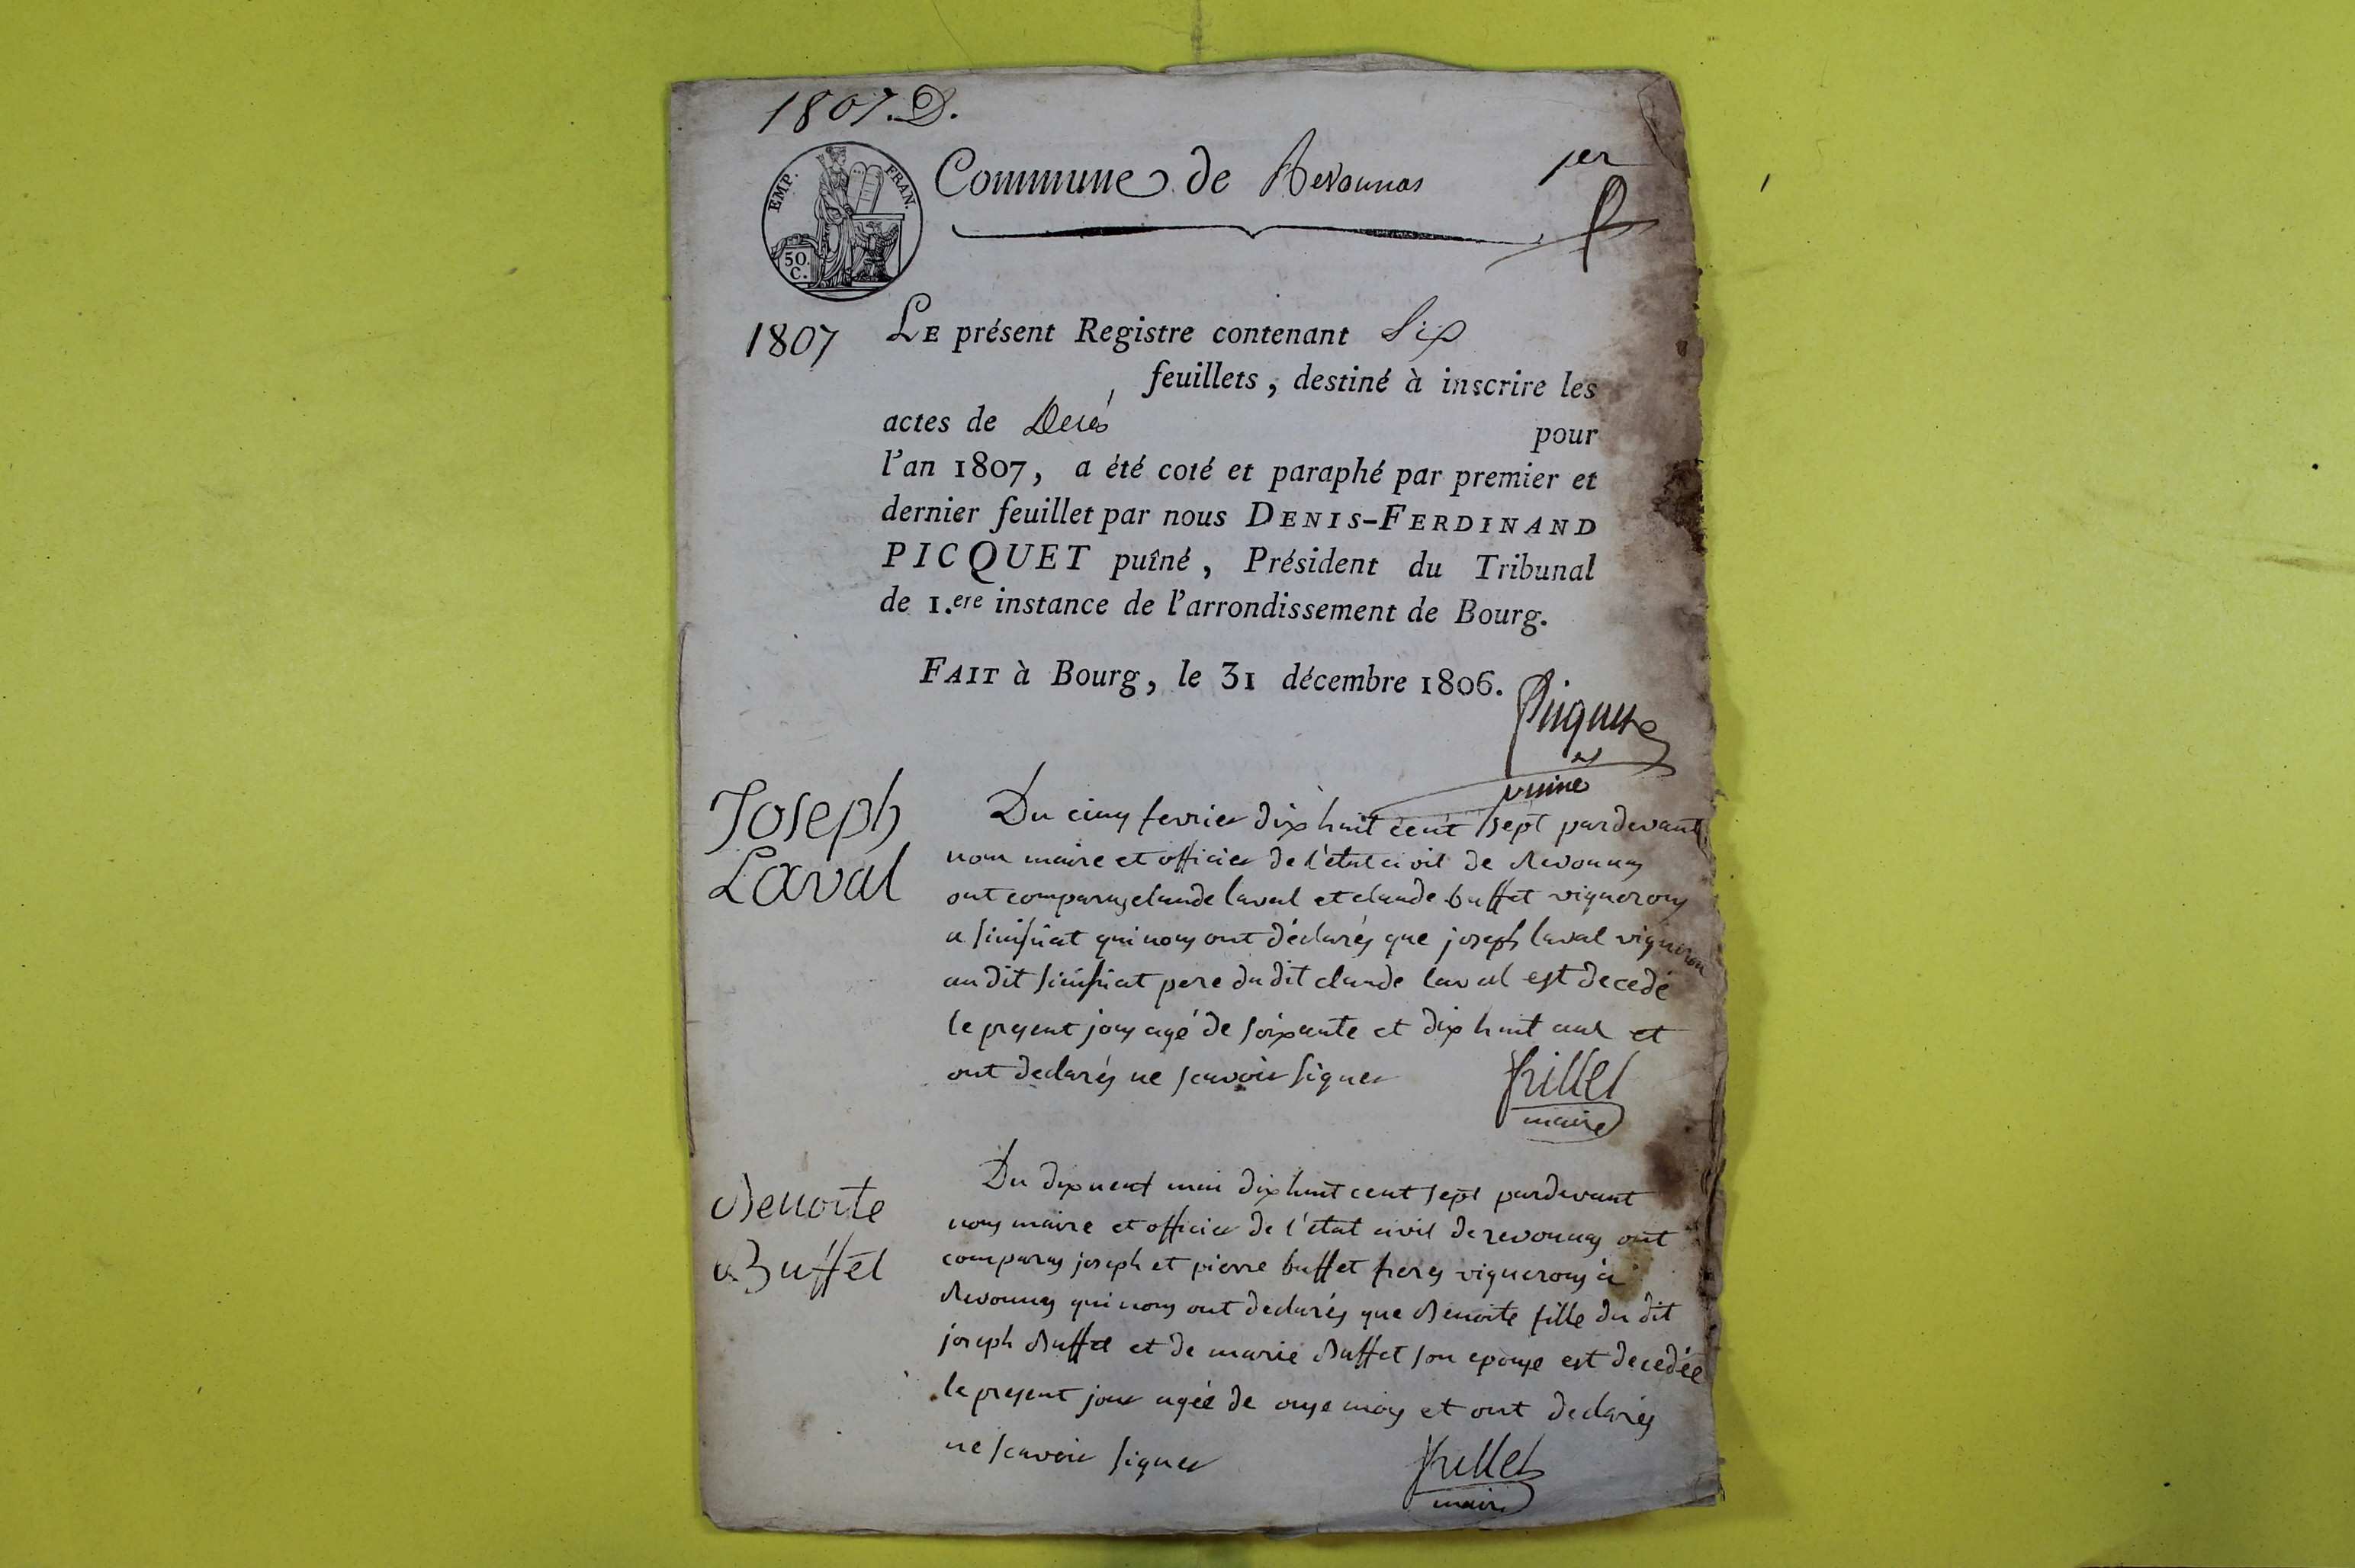 1807. D.
EMP. FRAN.
50. C.
Commune de Revonnas
1er
1807
LE présent Registre contenant Six
feuillets, destiné à inscrire les
actes de Decés pour
l'an 1807, a été coté et paraphé par premier et
dernier feuillet par nous DENIS-FERDINAND
PICQUET puîné, Président du Tribunal
de 1.ere instance de l'arrondissement de Bourg.
FAIT à Bourg, le 31 décembre 1806.
Picquet
puiné
Joseph
Laval
Du cinq fevrier dix huit cent sept pardevant
nous maire et officier de l'etat civil de Revonnas
ont comparus claude laval et claude buffet vignerons
a qui nous ont déclarés que joseph laval vigneron
au dit pere du dit claude laval est decedé
le present jour agé de soixante et dix huit ans et
ont declarés ne scavoir signer
maire
Benoite
Buffet
Du dix neuf mai dix huit cent sept pardevant
nous maire et officier de l'état civil de revonnas ont
comparus joseph et pierre buffet freres vignerons à
Revonnas qui nous ont declarés que Benoite fille du dit
joseph Buffet et de marie Buffet son epouse est decedée
le present jour agée de onze mois et ont declarés
ne scavoir signer
maire